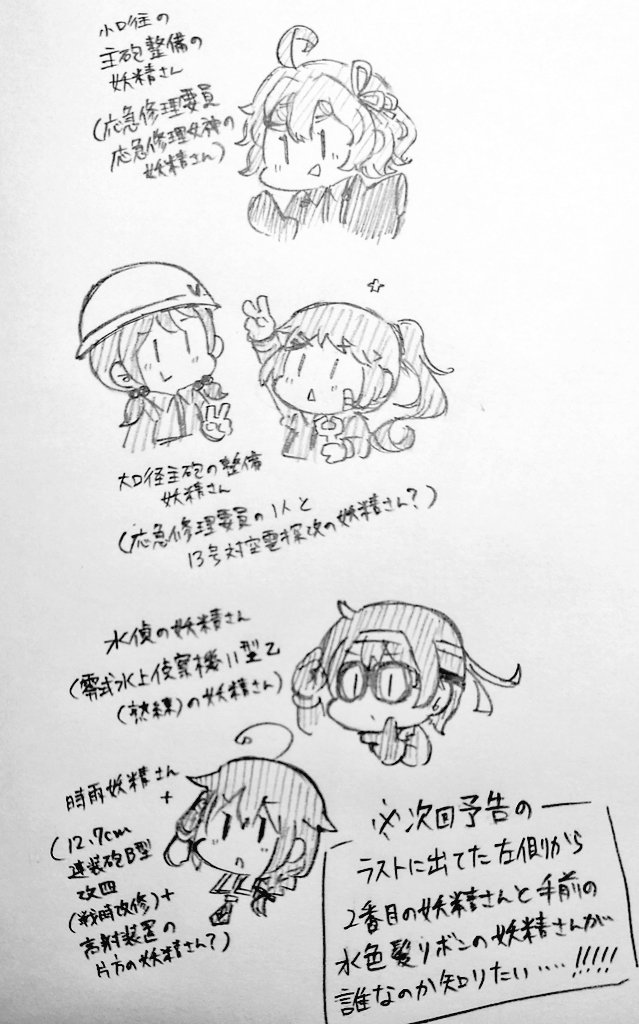 小口径の
主砲整備の
妖精さん
(応急修理要員
応急修理女神の
妖精さん)
大口径主砲の整備
妖精さん
(応急修理要員の1人と
13号対空電探改の妖精さん?)
水偵の妖精さん
(零式水上偵察機11型乙
(熟練)の妖精さん)
時雨妖精さん
+
(12.7cm
連装砲B型
改四
(戦時改修)+
高射装置の
片方の妖精さん?)
※次回予告の
ラストに出てた左側から
2番目の妖精さんと手前の
水色髪リボンの妖精さんが
誰なのか知りたい‥‥!!!!!